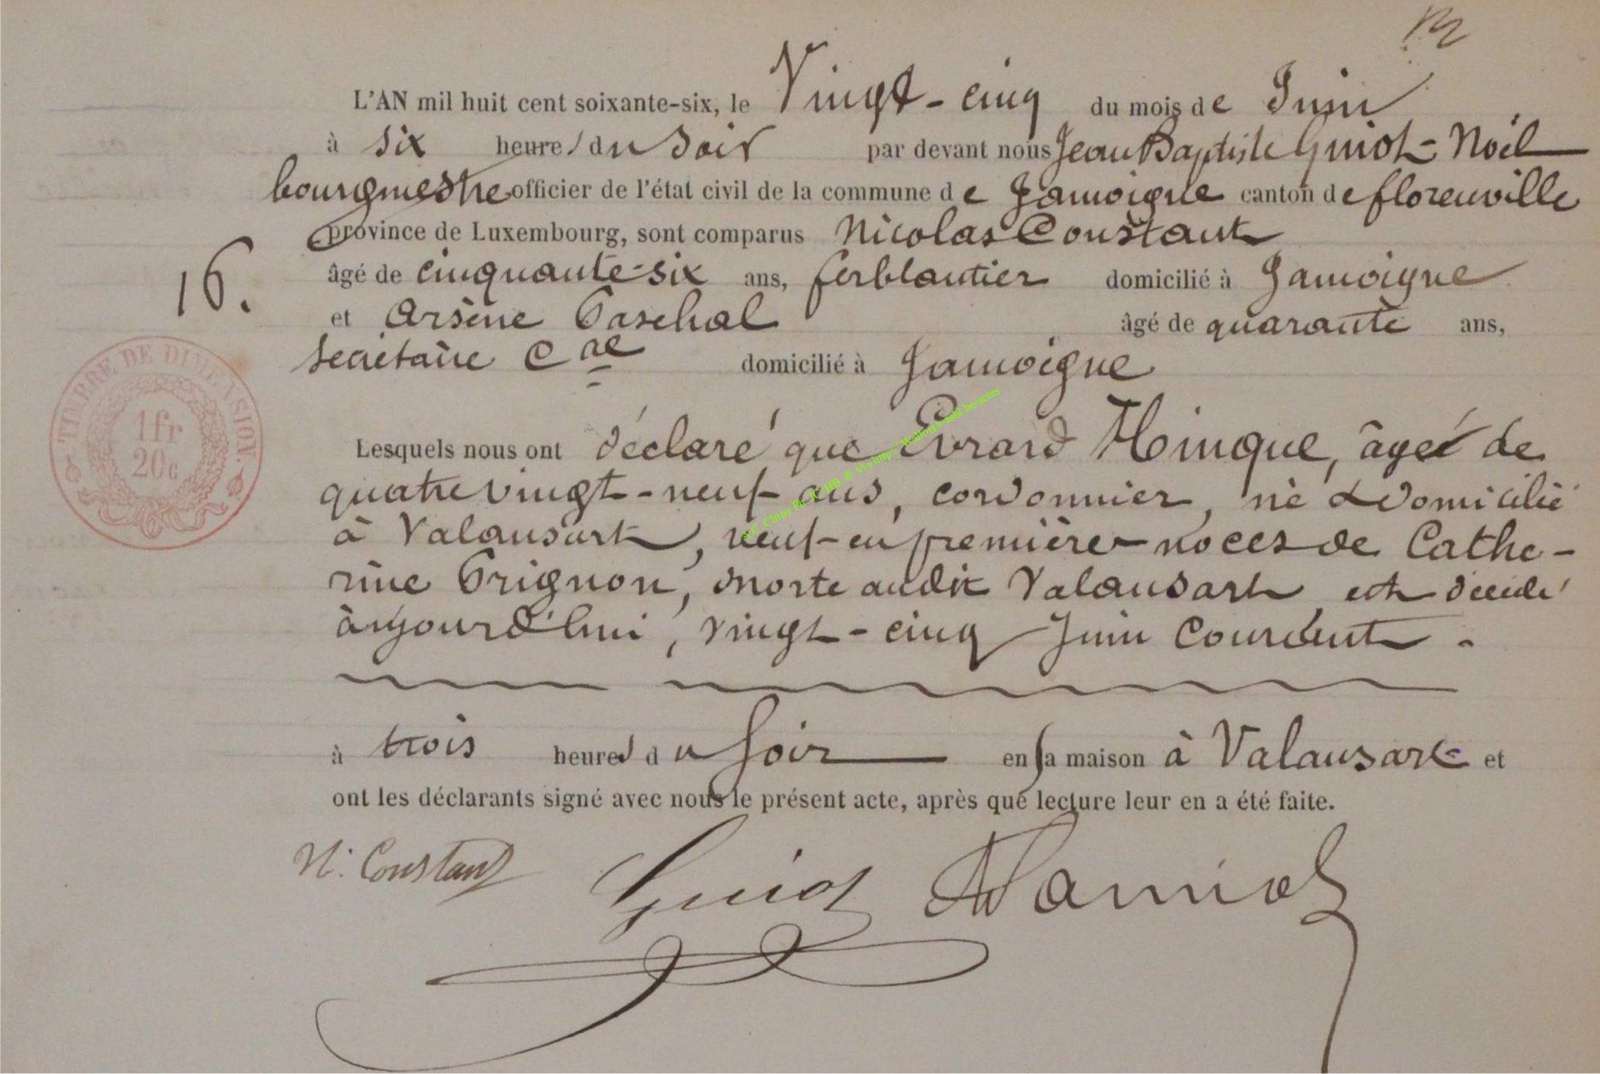 L'AN mil huit cent soixante-six, le Vingt-cinq du mois de Juin
à six heures du Soir par devant nous Jean Baptiste Guiot-Noël
bourgmestre officier de l'état civil de la commune de Jamoigne canton de florenville
province de Luxembourg, sont comparus Nicolas Constant
16.
âgé de cinquante-six ans, ferblantier domicilié à Jamoigne
et Arsène Paschal âgé de quarante ans,
Secrétaire Cal domicilié à Jamoigne
TIMBRE DE DIMENSION
1 fr
20 c
Lesquels nous ont déclaré que Evrard Hinque, âgé de
quatre vingt-neuf ans, cordonnier, né & domicilié
à Valansart, veuf en premières noces de Cathe-
rine Grignon, morte audit Valansart, est décédé
aujourd'hui, vingt-cinq Juin Courant.
à trois heures du soir en sa maison à Valansart et
ont les déclarants signé avec nous le présent acte, après que lecture leur en a été faite.
N. Constant Guiot